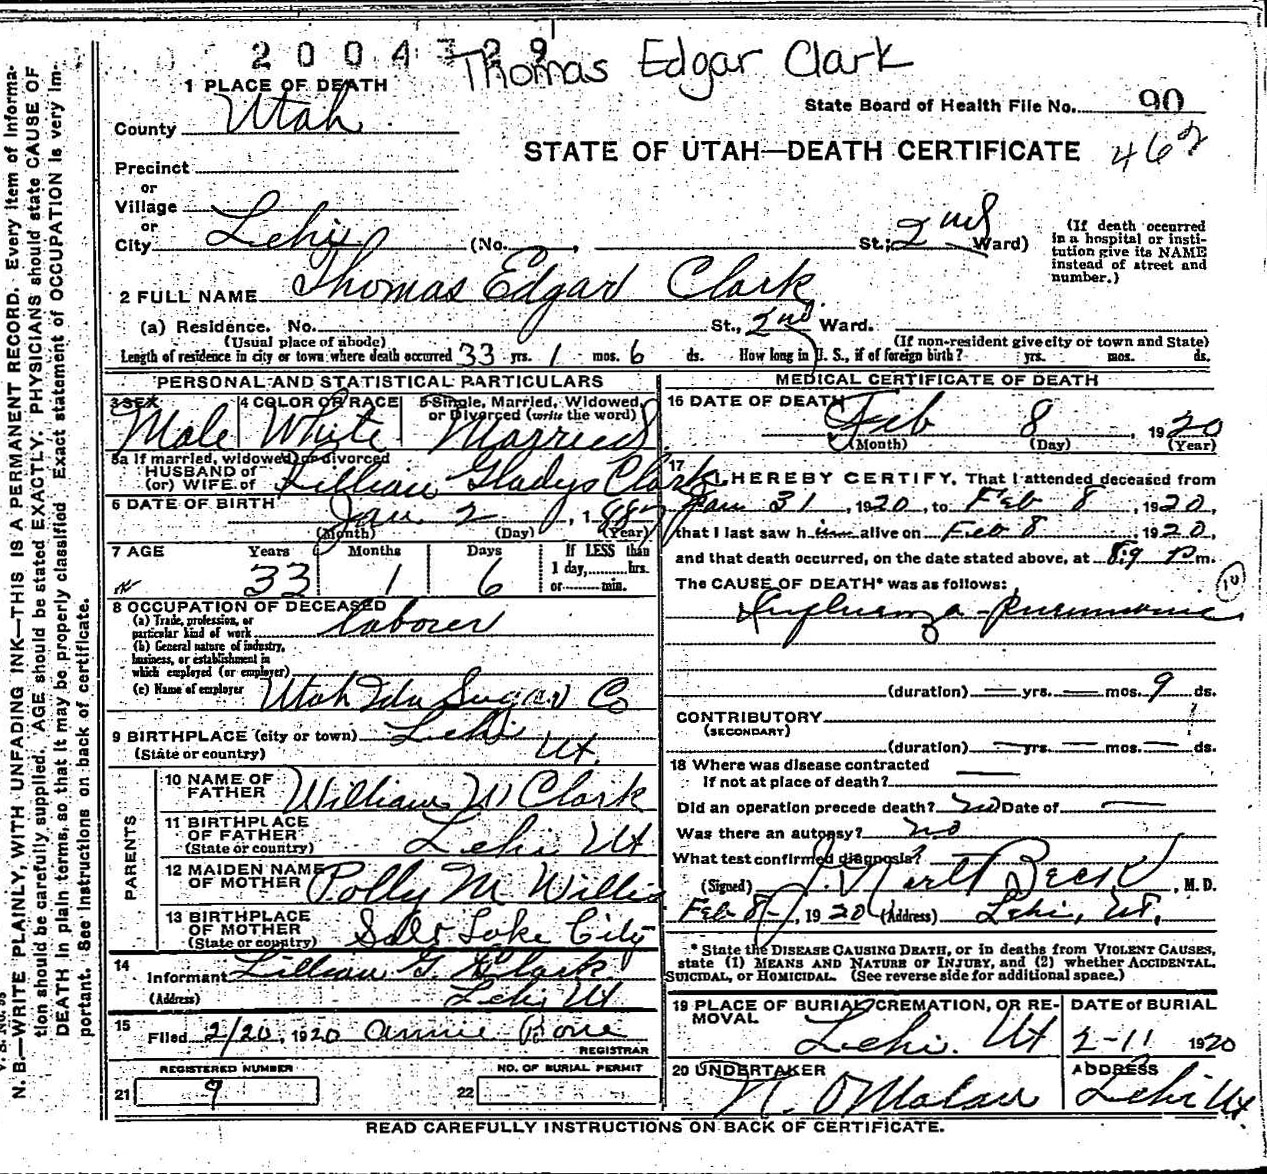 2004329
Thomas Edgar Clark
1 PLACE OF DEATH
State Board of Health File No. 90
County Utah
STATE OF UTAH—DEATH CERTIFICATE 462
Precinct
or
Village
or
City Lehi (No. , St.; 2nd Ward)
(If death occurred in a hospital or institution give its NAME instead of street and number.)
2 FULL NAME Thomas Edgar Clark
(a) Residence. No. St., 2nd Ward.
(Usual place of abode) (If non-resident give city or town and State)
Length of residence in city or town where death occurred 33 yrs. 1 mos. 6 ds. How long in U. S., if of foreign birth? yrs. mos. ds.
PERSONAL AND STATISTICAL PARTICULARS
3 SEX 4 COLOR OR RACE 5 Single, Married, Widowed, or Divorced (write the word)
Male White Married
5a If married, widowed, or divorced
HUSBAND of
(or) WIFE of Lillian Gladys Clark
6 DATE OF BIRTH
Jan 2, 1887
(Month) (Day) (Year)
7 AGE Years Months Days If LESS than
1 day,........hrs.
or........min.
33 1 6
8 OCCUPATION OF DECEASED
(a) Trade, profession, or
particular kind of work laborer
(b) General nature of industry,
business, or establishment in
which employed (or employer)
(c) Name of employer Utah Ida Sugar Co
9 BIRTHPLACE (city or town) Lehi
(State or country) Ut.
PARENTS
10 NAME OF
FATHER William W Clark
11 BIRTHPLACE
OF FATHER
(State or country) Lehi Ut
12 MAIDEN NAME
OF MOTHER Polly M. Willis
13 BIRTHPLACE
OF MOTHER
(State or country) Salt Lake City
14
Informant Lillian G. Clark
(Address) Lehi Ut
15
Filed 2/20, 1920 Annie Bone
REGISTRAR
REGISTERED NUMBER NO. OF BURIAL PERMIT
21 9 22
MEDICAL CERTIFICATE OF DEATH
16 DATE OF DEATH
Feb 8, 1920
(Month) (Day) (Year)
17
I HEREBY CERTIFY, That I attended deceased from
Jan 31, 1920, to Feb 8, 1920,
that I last saw him alive on Feb 8 1920,
and that death occurred, on the date stated above, at P m.
The CAUSE OF DEATH* was as follows:
Influenza-pneumonia
10
(duration) — yrs. — mos. 9 ds.
CONTRIBUTORY
(SECONDARY)
(duration) — yrs. — mos. — ds.
18 Where was disease contracted
If not at place of death?
Did an operation precede death? no Date of —
Was there an autopsy? no
What test confirmed diagnosis? —
(Signed) Beck, M. D.
Feb 8, 1920 (Address) Lehi, Ut.
* State the DISEASE CAUSING DEATH, or in deaths from VIOLENT CAUSES,
state (1) MEANS AND NATURE OF INJURY, and (2) whether ACCIDENTAL,
SUICIDAL, or HOMICIDAL. (See reverse side for additional space.)
19 PLACE OF BURIAL, CREMATION, OR RE-
MOVAL
Lehi. Ut
DATE of BURIAL
2-11 1920
20 UNDERTAKER
ADDRESS
Lehi Ut
READ CAREFULLY INSTRUCTIONS ON BACK OF CERTIFICATE.
N. B.—WRITE PLAINLY, WITH UNFADING INK—THIS IS A PERMANENT RECORD. Every item of informa-
tion should be carefully supplied. AGE should be stated EXACTLY. PHYSICIANS should state CAUSE OF
DEATH in plain terms, so that it may be properly classified. Exact statement of OCCUPATION is very im-
portant. See instructions on back of certificate.